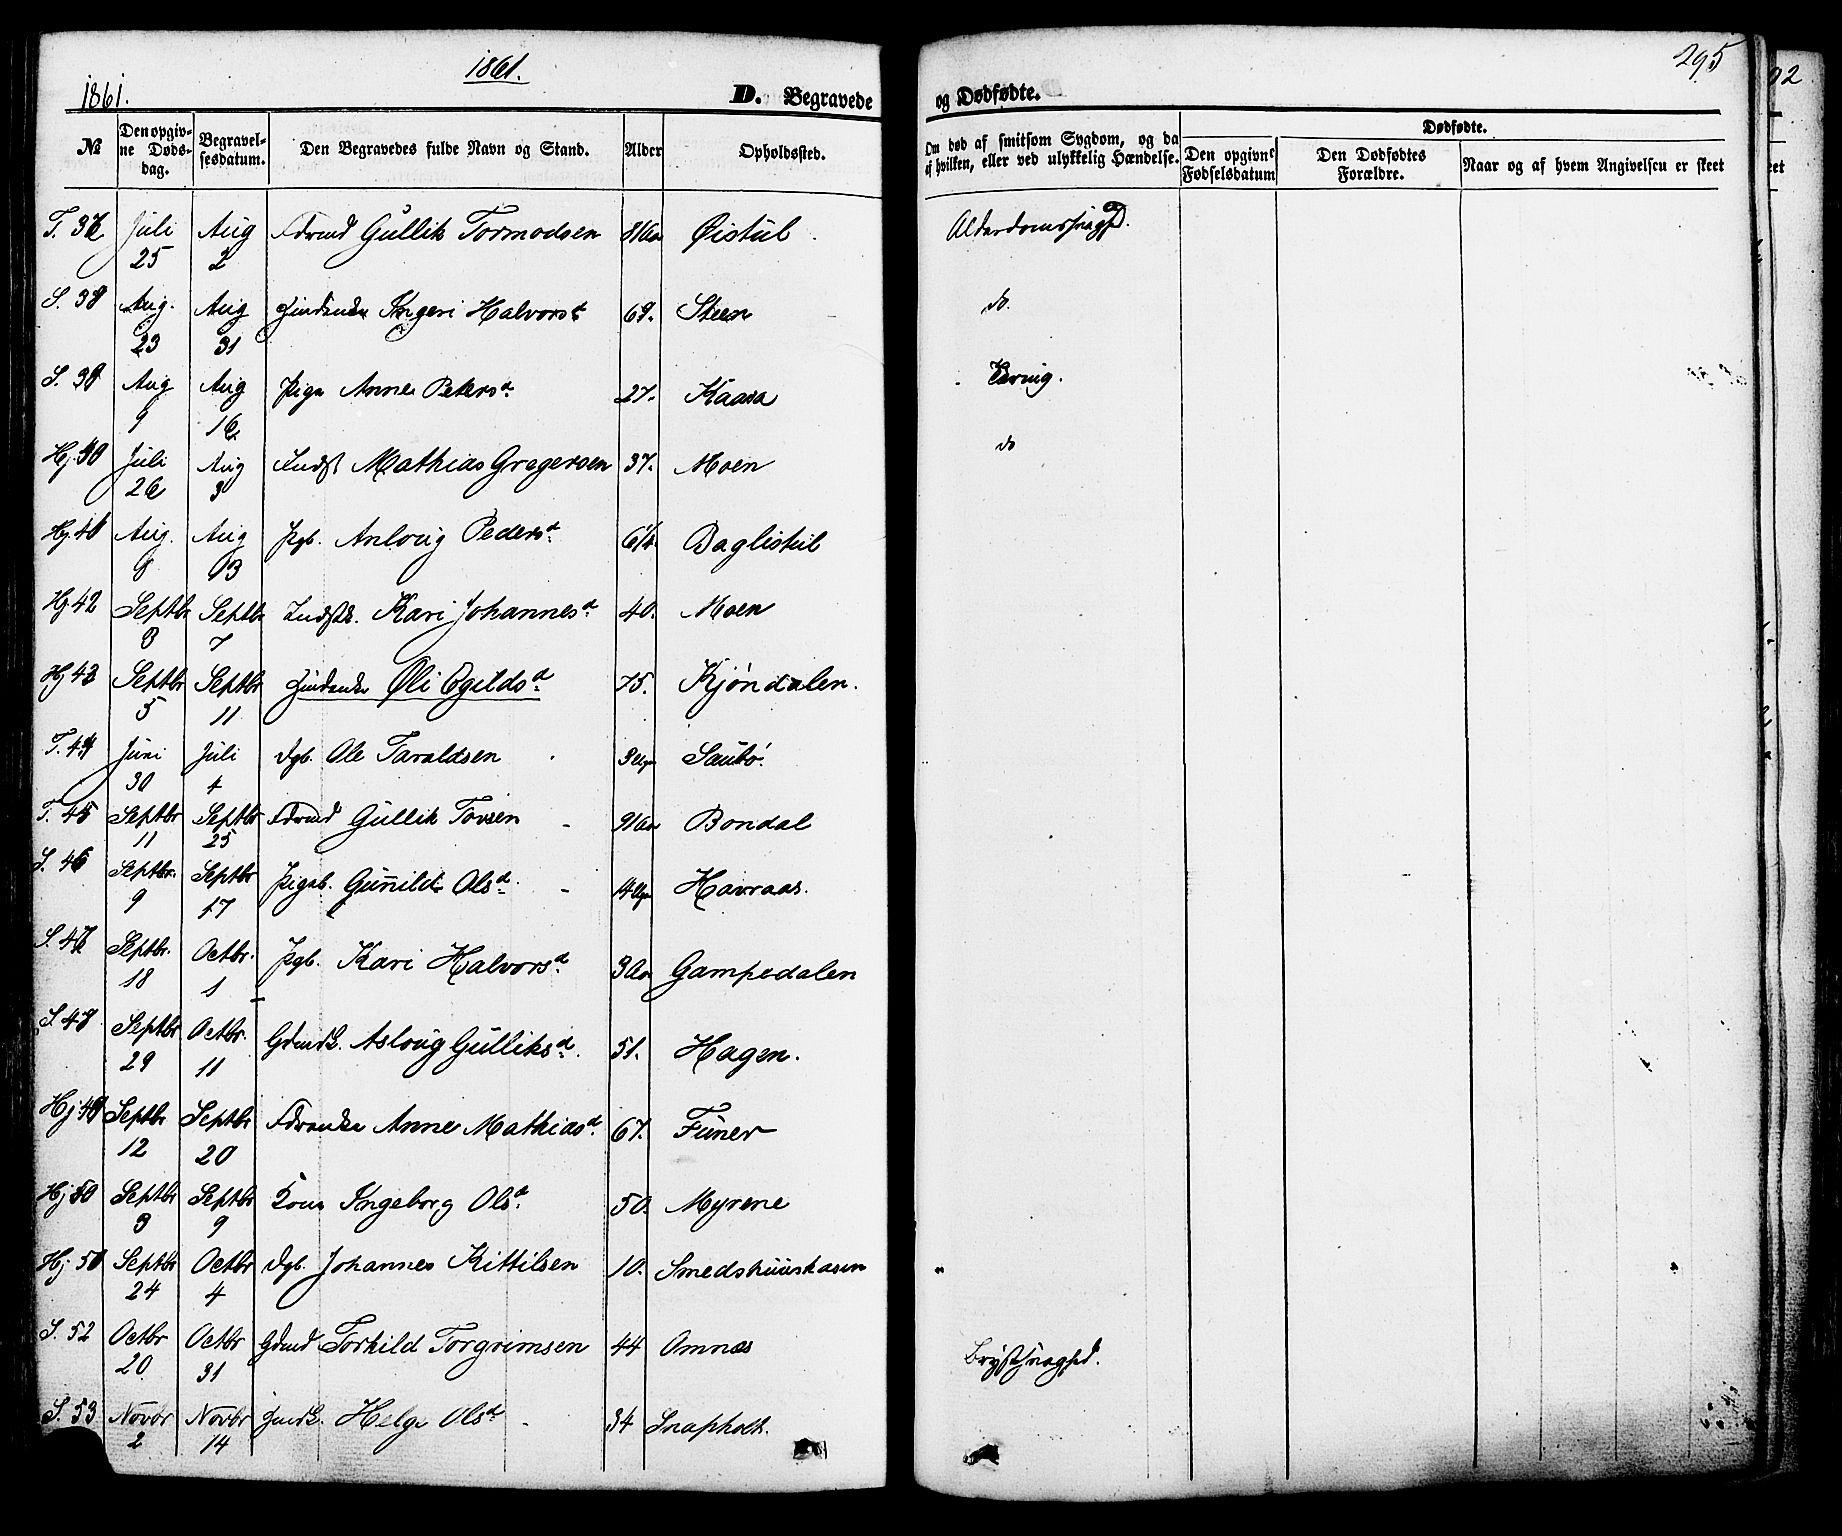 1861.
1861.
295
D. Begravede
og Dødfødte.
№
Den opgivne Dødsdag.
Begravelsesdatum.
Den Begravedes fulde Navn og Stand.
Alder
Opholdssted.
Om død af smitsom Sygdom, og da af hvilken, eller ved ulykkelig Hændelse.
Dødfødte.
Den opgivne Fødselsdatum
Den Dødfødtes Forældre.
Naar og af hvem Angivelsen er skeet
T. 37 Juli 25 Aug 2 Gullik Tormodsen Øistul
S. 38 Aug. 23 Aug 31 Ingeri Halvorsd 69. Steen do.
S. 39 Aug 9 Aug 16 Pige Anne Petersd 27. Kaasa Tæring.
Hj. 40 Juli 26 Aug 3 Indst Mathias Gregersen 37. Moen do
Hj. 41 Aug. 8 Aug 13 Pgb. Anloug Pedersd Baglistul
Hj 42 Septbr 3 Septbr 7 Kari Johannesd 40. Moen
Hj 43 Septbr 5 Septbr 11 Øli Egildsd 75. Kjøndalen.
T. 44 Juni 30 Juli 4 Dgb. Ole Taraldsen Sautbø.
T. 45 Septbr 11 Septbr 25 Gullik Tovsen Bondal
S. 46 Septbr. 9 Septbr 17 Pigeb. Gunild Olsd Havraas.
S. 47 Septbr. 18 Octbr. 1 Pgb. Kari Halvorsd 3 Aar Gampedalen
S. 48 Septbr 29 Octbr. 11 Asloug Gulliksd 51. Hagen.
Hj 49 Septbr 12 Septbr 20 Anne Mathiasd. 67. Funer
Hj 50 Septbr 3 Septbr 9 Kone Ingeborg Olsd 50. Myrene
Hj 51 Septbr 24 Octbr 4 Dgb. Johannes Kittilsen 10. Smedshuuskasin
S. 52 Octbr 20 Octbr 31 Torkild Torgrimsen 44 Omnæs Brystsvaghed.
S. 53 Novbr 2 Novbr 14 Helge Olsd 34 Snapholt.